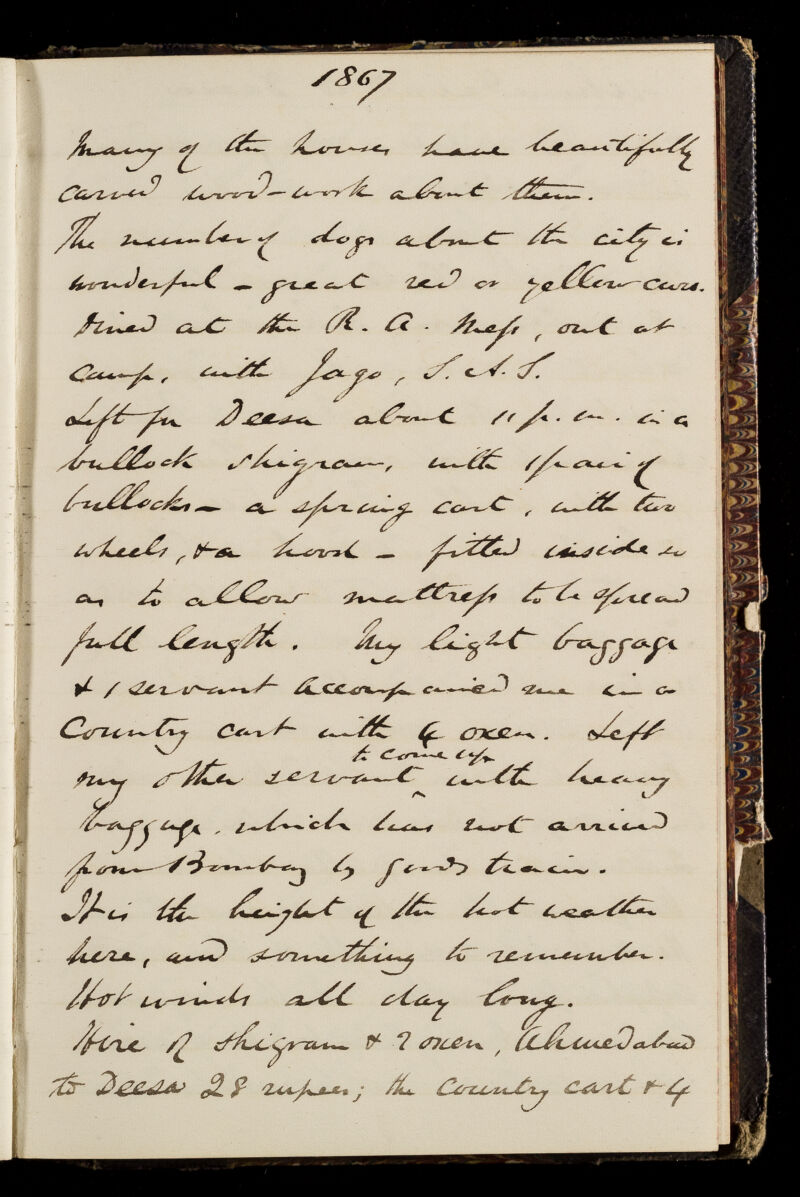 1867
Many of the houses have beautifully
carved wood-work about them.
The number of dogs about the city is
wonderful - great red or yellow curs.
Dined at the R. A. Mess, out at
camp, with Jago, S. A. S.
Left for Deesa about 11 p.m. in a
bullock shigram, with 1 pair of
bullocks - a spring cart, with two
wheels, & a hood - fitted inside so
as to allow mattress to be spread
full length. My light baggage
& 1 servant accompanied me in a
Country cart with 4 oxen. Left
my other servant to come up with heavy
baggage, which has not arrived
from Bombay by goods train.
It is the height of the hot weather
here, and something to remember.
Hot winds all day long.
Hire of shigram & 2 oxen, Ahmedabad
to Deesa 28 rupees; the Country cart & 4